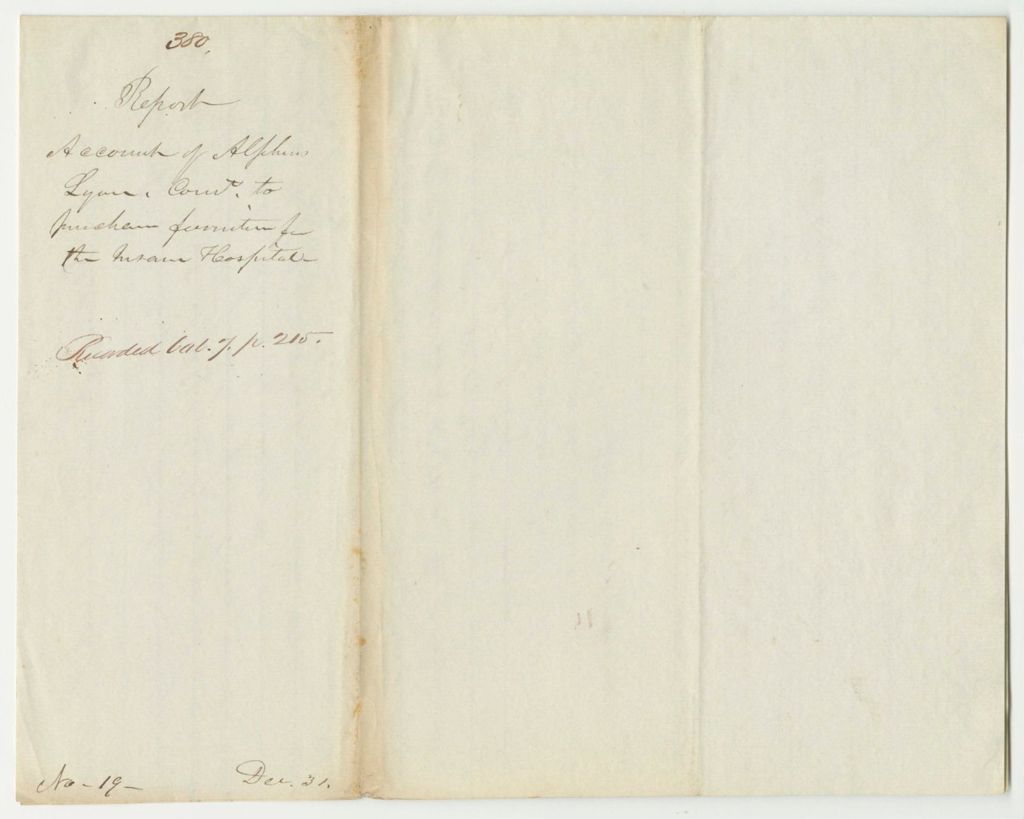 380.
Report
Account of Alpheus
Lyon, Com'r. to
purchase furniture for
the Insane Hospital
Recorded Vol. 7. p. 215.
No - 19 -
Dec. 31.